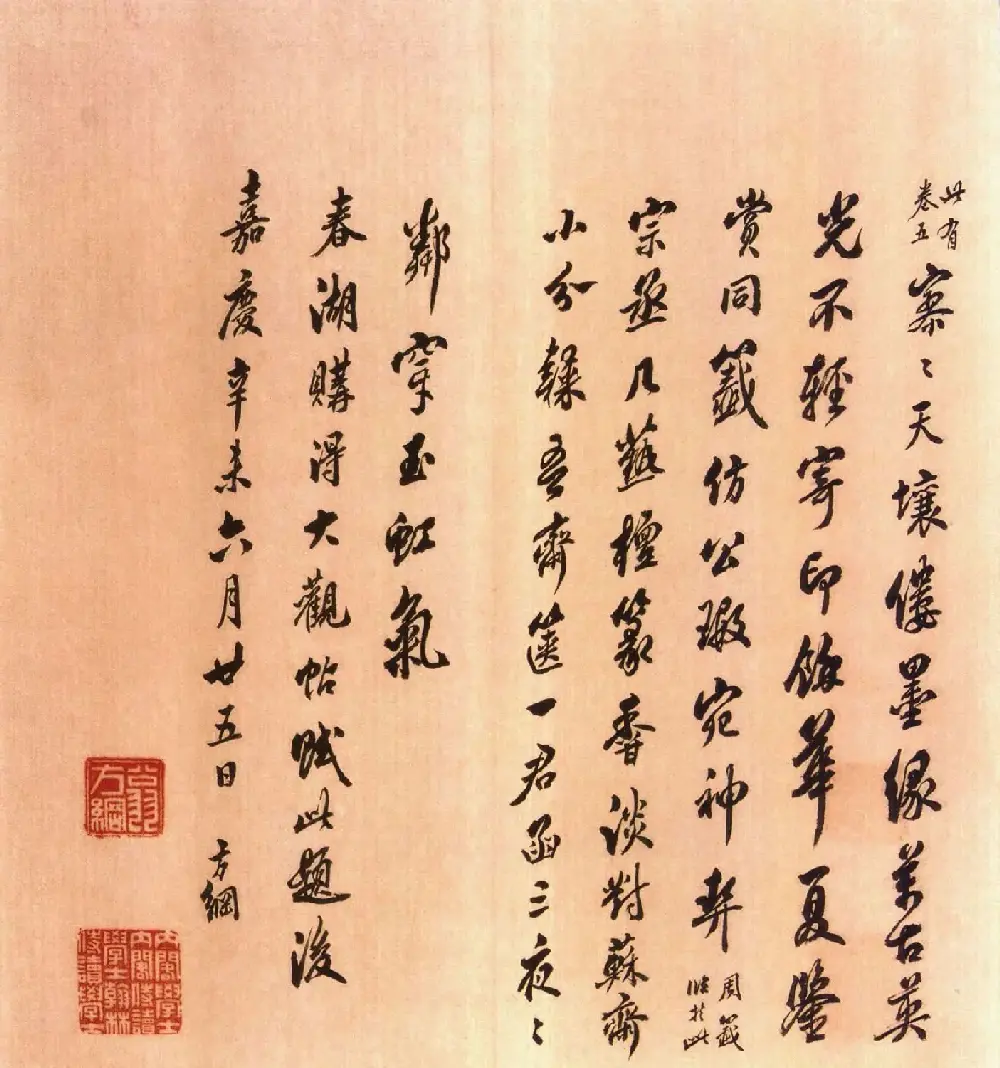 此有
卷五
寥々天壤偻墨緣萬古英
光不輕寄印餘華夏鑒
賞同籤仿公瑕宛神契
周籤
in於此
宗丞几蓺檀篆香淡對蘇齋
小分隸吾齋篋一君函三夜々
鄰穿玉虹氣
春湖購得大觀帖賦此題後
嘉慶辛未六月廿五日 方綱
翁方綱
內閣學士
內閣侍讀
學士翰林
侍讀學士